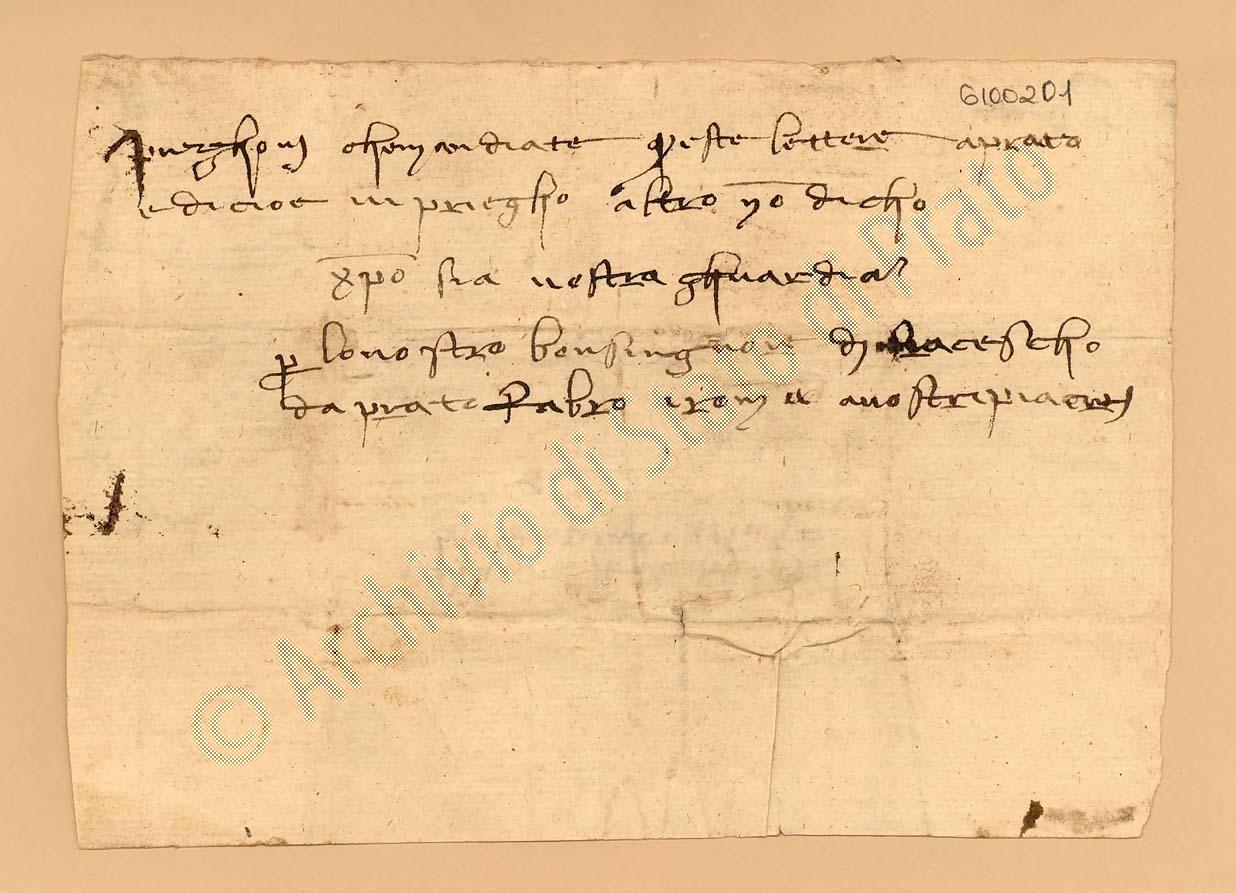 6100201
che mandiate queste lettere a prato
e di cioe vi priegho altro nō dicho
xp̄o sia vostra ghuardia
p lo vostro bonsingnore di
da prato fabro a vostri piaceri
© Archivio di Stato di Prato